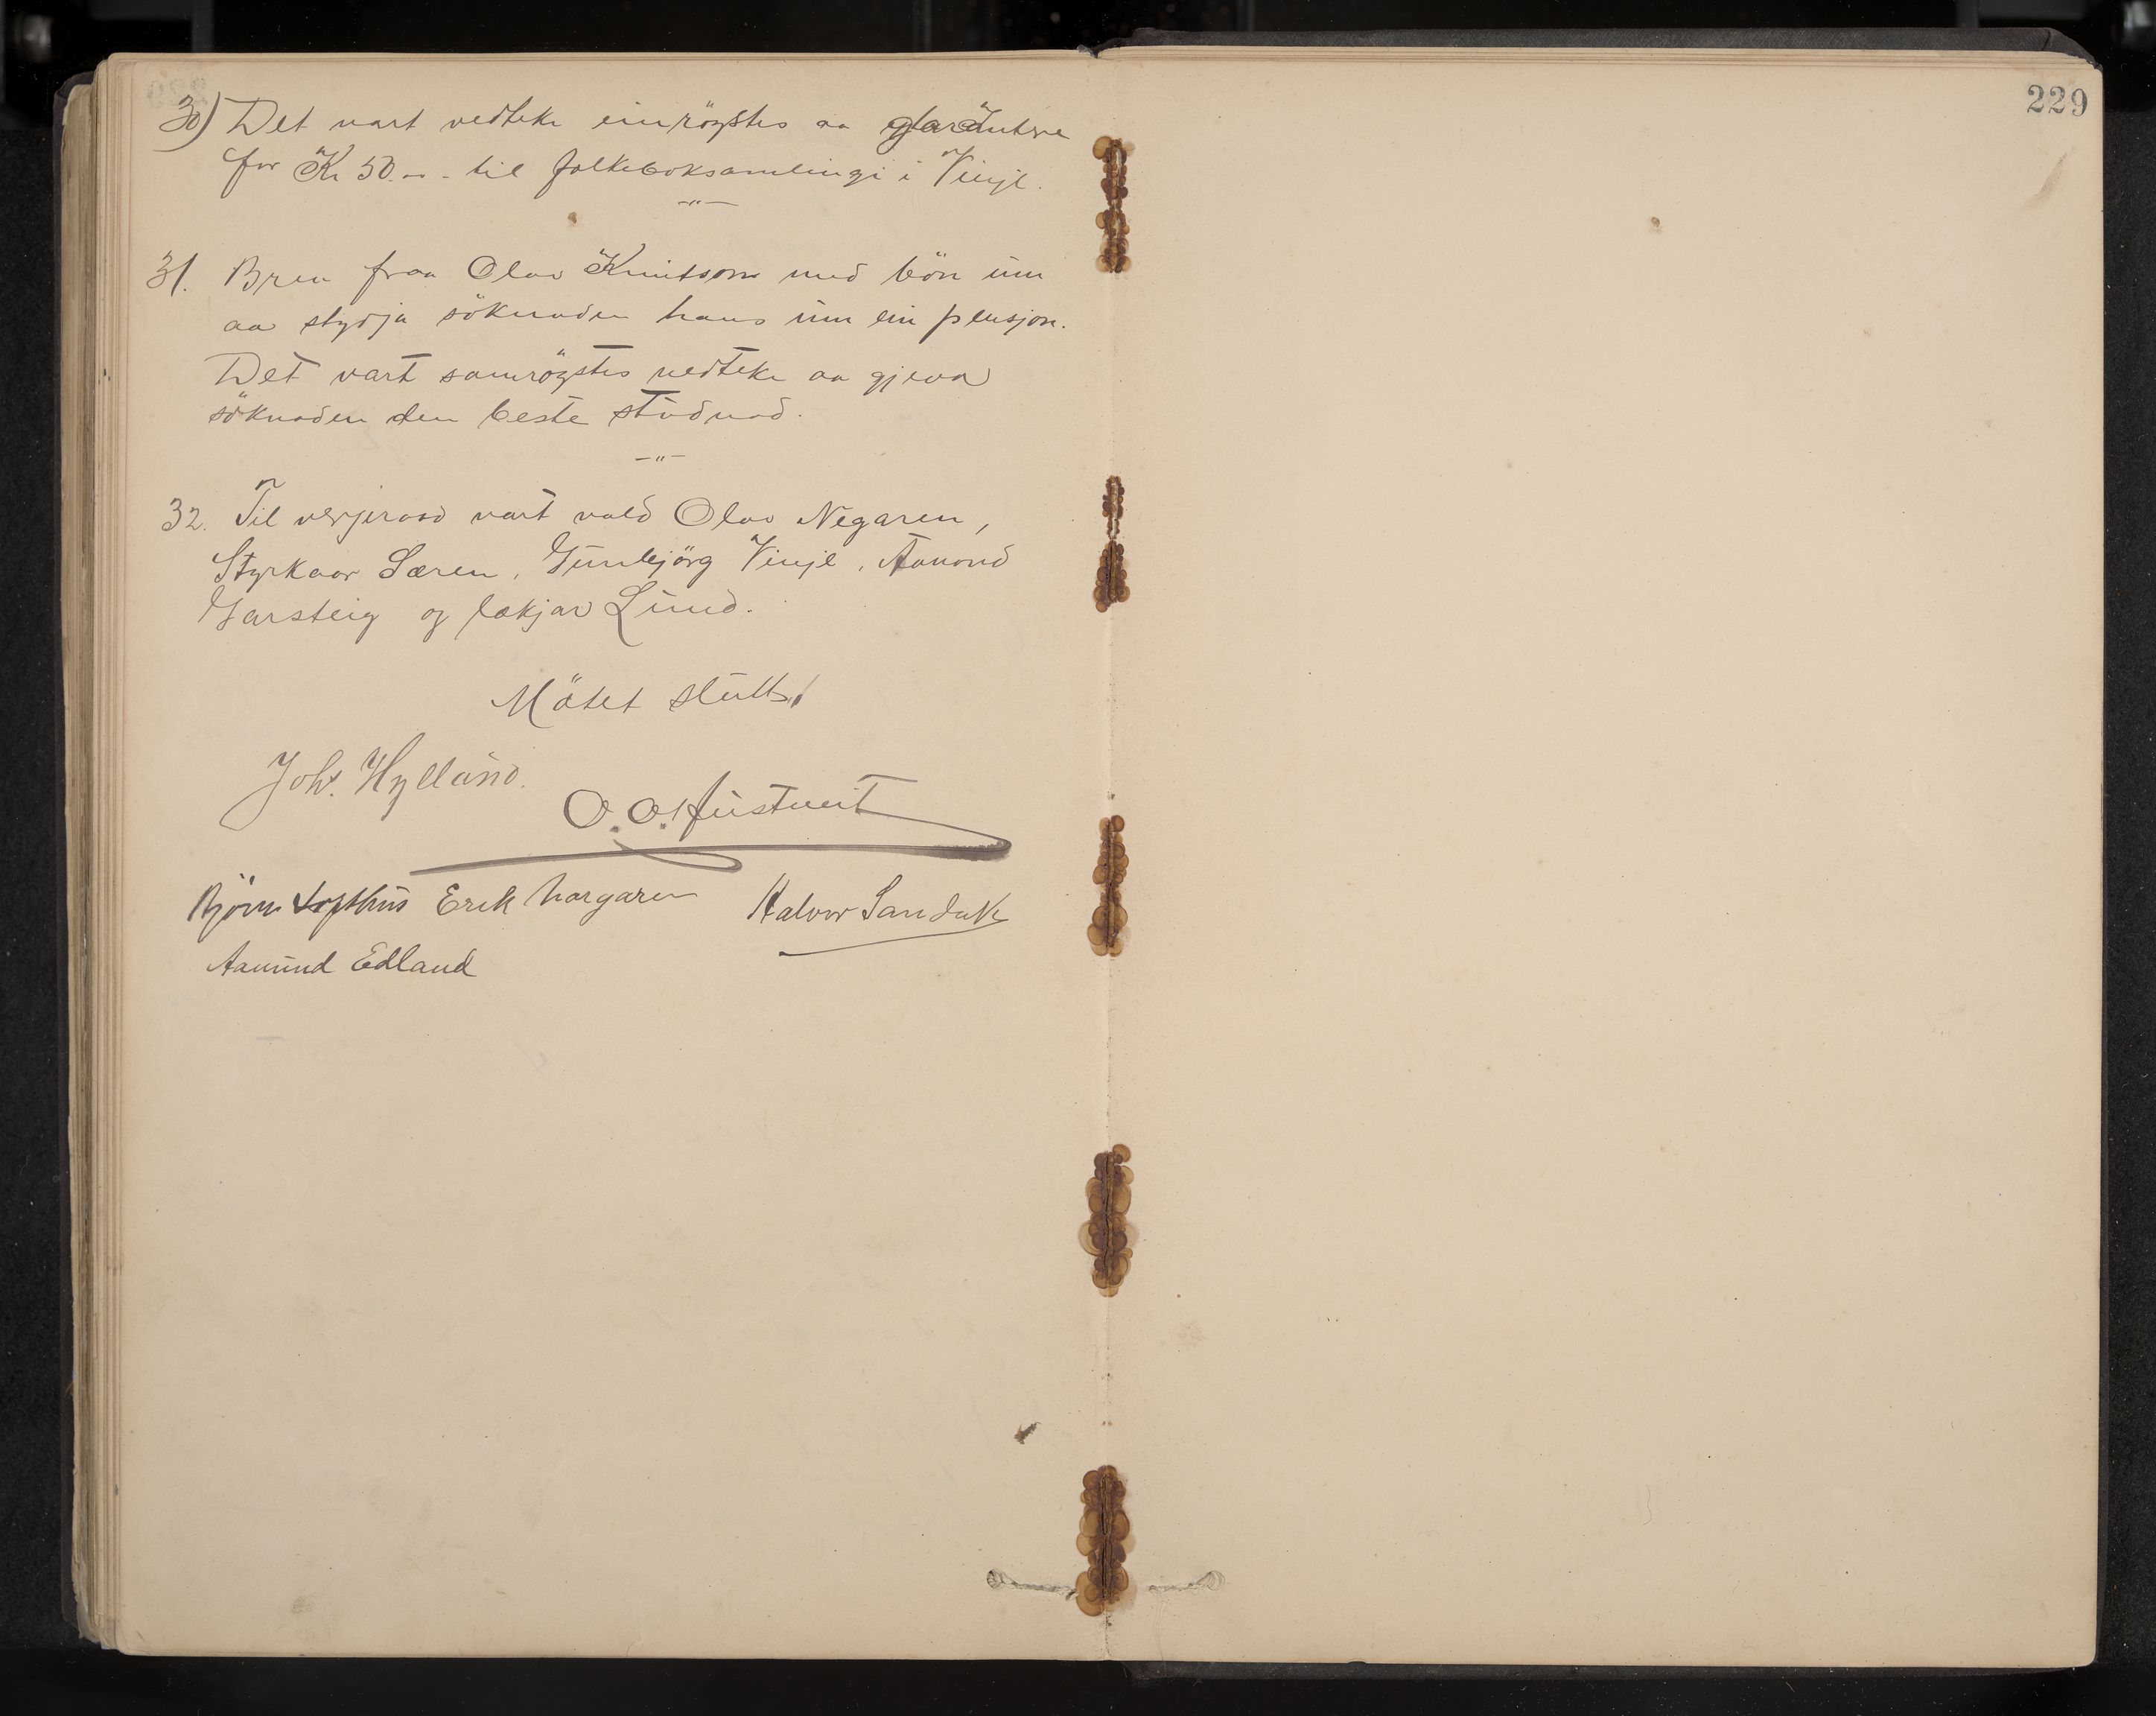 229
30) Det vart vedteke einröystes aa garantere
for Kr 50.-- til folkeboksamlingi i Vinje.
-"-
31. Brev fraa Olav Knutson med bön um
aa stydja söknaden hans um ein pensjon.
Det vart samröystes vedteke aa gjeva
söknaden den beste studnad.
-"-
32. Til verjeraad vart vald Olav Negaren,
Styrkaar Særen, Gunbjörg Vinje, Aamond
Garsteig og lækjar Lund.
Mötet slutt.
Joh. Hylland.
O. O.
Björn Lofthus Erik Hargaren Halvor Sandvik
Aamund Edland